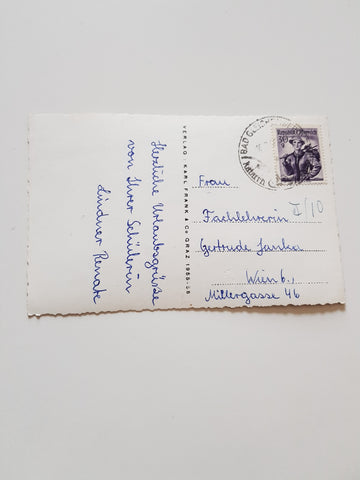 Herzliche Urlaubsgrüße
von Ihrer Schülerin
Lindner Renate
VERLAG: KARL FRANK & Co GRAZ 1955-58
BAD
Republik Österreich
Frau
I/10
Fachlehrerin
Gertrude Janka
Wien 6.,
Millergasse 46